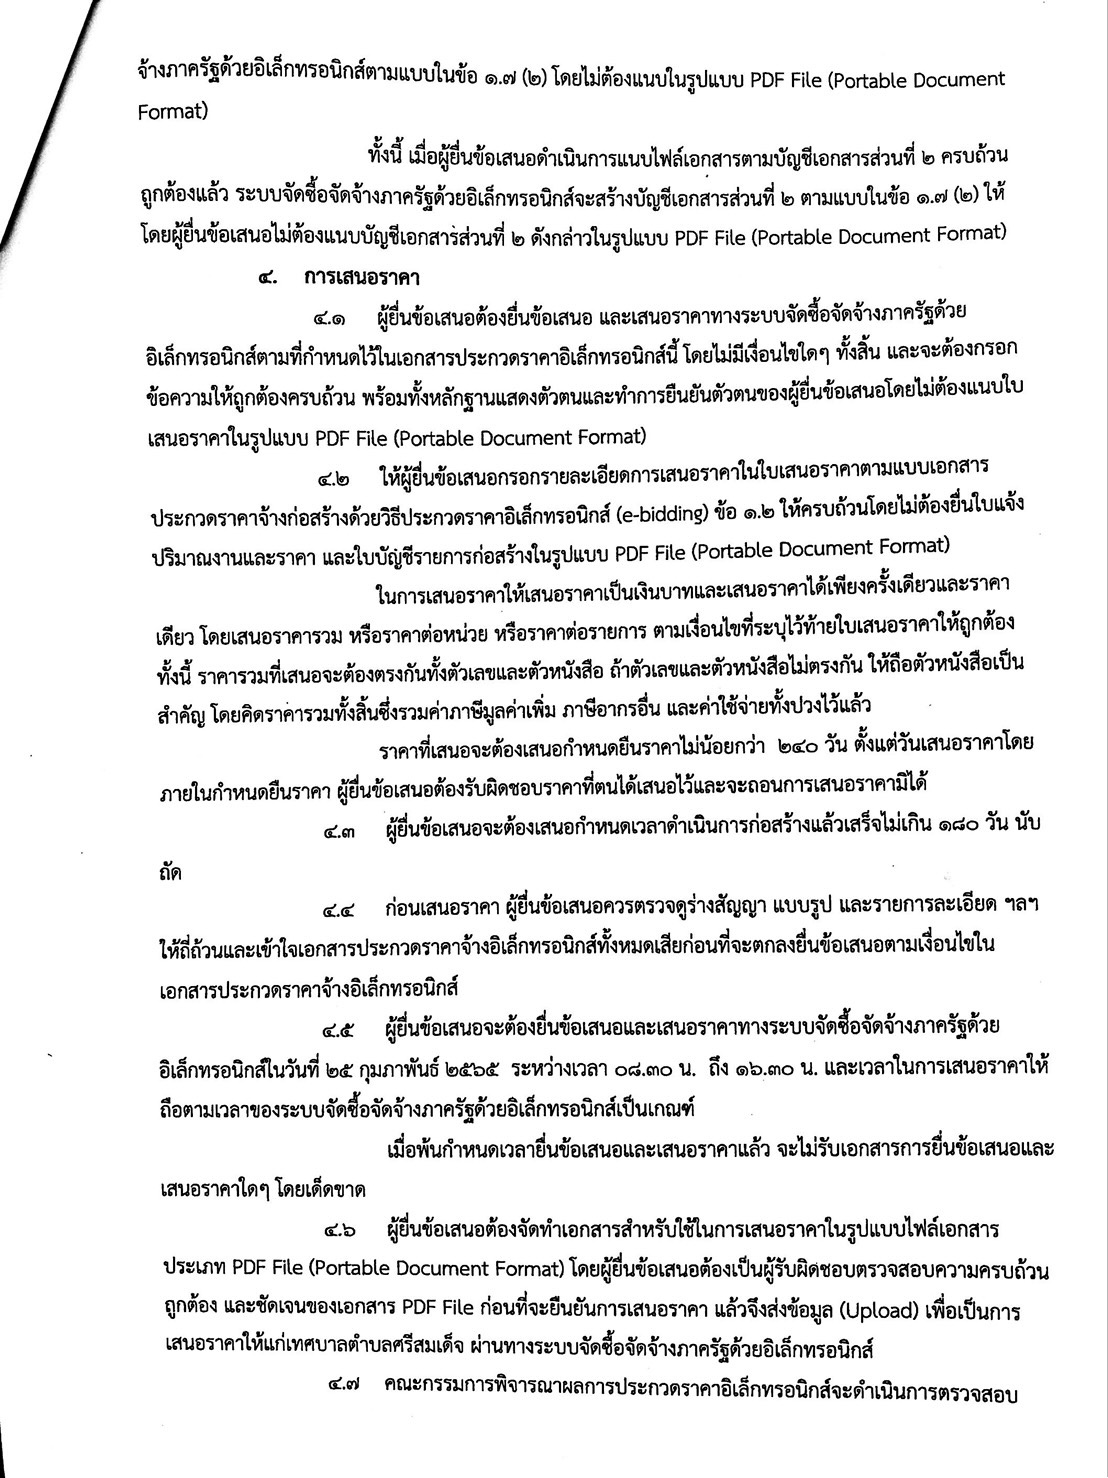 จ้างภาครัฐด้วยอิเล็กทรอนิกส์ตามแบบในข้อ ๑.๗ (๒) โดยไม่ต้องแนบในรูปแบบ PDF File (Portable Document
Format)
ทั้งนี้ เมื่อผู้ยื่นข้อเสนอดำเนินการแนบไฟล์เอกสารตามบัญชีเอกสารส่วนที่ ๒ ครบถ้วน
ถูกต้องแล้ว ระบบจัดซื้อจัดจ้างภาครัฐด้วยอิเล็กทรอนิกส์จะสร้างบัญชีเอกสารส่วนที่ ๒ ตามแบบในข้อ ๑.๗ (๒) ให้
โดยผู้ยื่นข้อเสนอไม่ต้องแนบบัญชีเอกสารส่วนที่ ๒ ดังกล่าวในรูปแบบ PDF File (Portable Document Format)
๔. การเสนอราคา
๔.๑ ผู้ยื่นข้อเสนอต้องยื่นข้อเสนอ และเสนอราคาทางระบบจัดซื้อจัดจ้างภาครัฐด้วย
อิเล็กทรอนิกส์ตามที่กำหนดไว้ในเอกสารประกวดราคาอิเล็กทรอนิกส์นี้ โดยไม่มีเงื่อนไขใดๆ ทั้งสิ้น และจะต้องกรอก
ข้อความให้ถูกต้องครบถ้วน พร้อมทั้งหลักฐานแสดงตัวตนและทำการยืนยันตัวตนของผู้ยื่นข้อเสนอโดยไม่ต้องแนบใบ
เสนอราคาในรูปแบบ PDF File (Portable Document Format)
๔.๒ ให้ผู้ยื่นข้อเสนอกรอกรายละเอียดการเสนอราคาในใบเสนอราคาตามแบบเอกสาร
ประกวดราคาจ้างก่อสร้างด้วยวิธีประกวดราคาอิเล็กทรอนิกส์ (e-bidding) ข้อ ๑.๒ ให้ครบถ้วนโดยไม่ต้องยื่นใบแจ้ง
ปริมาณงานและราคา และใบบัญชีรายการก่อสร้างในรูปแบบ PDF File (Portable Document Format)
ในการเสนอราคาให้เสนอราคาเป็นเงินบาทและเสนอราคาได้เพียงครั้งเดียวและราคา
เดียว โดยเสนอราคารวม หรือราคาต่อหน่วย หรือราคาต่อรายการ ตามเงื่อนไขที่ระบุไว้ท้ายใบเสนอราคาให้ถูกต้อง
ทั้งนี้ ราคารวมที่เสนอจะต้องตรงกันทั้งตัวเลขและตัวหนังสือ ถ้าตัวเลขและตัวหนังสือไม่ตรงกัน ให้ถือตัวหนังสือเป็น
สำคัญ โดยคิดราคารวมทั้งสิ้นซึ่งรวมค่าภาษีมูลค่าเพิ่ม ภาษีอากรอื่น และค่าใช้จ่ายทั้งปวงไว้แล้ว
ราคาที่เสนอจะต้องเสนอกำหนดยืนราคาไม่น้อยกว่า ๒๔๐ วัน ตั้งแต่วันเสนอราคาโดย
ภายในกำหนดยืนราคา ผู้ยื่นข้อเสนอต้องรับผิดชอบราคาที่ตนได้เสนอไว้และจะถอนการเสนอราคามิได้
๔.๓ ผู้ยื่นข้อเสนอจะต้องเสนอกำหนดเวลาดำเนินการก่อสร้างแล้วเสร็จไม่เกิน ๑๘๐ วัน นับ
ถัด
๔.๔ ก่อนเสนอราคา ผู้ยื่นข้อเสนอควรตรวจดูร่างสัญญา แบบรูป และรายการละเอียด ฯลฯ
ให้ถี่ถ้วนและเข้าใจเอกสารประกวดราคาจ้างอิเล็กทรอนิกส์ทั้งหมดเสียก่อนที่จะตกลงยื่นข้อเสนอตามเงื่อนไขใน
เอกสารประกวดราคาจ้างอิเล็กทรอนิกส์
๔.๕ ผู้ยื่นข้อเสนอจะต้องยื่นข้อเสนอและเสนอราคาทางระบบจัดซื้อจัดจ้างภาครัฐด้วย
อิเล็กทรอนิกส์ในวันที่ ๒๕ กุมภาพันธ์ ๒๕๖๕ ระหว่างเวลา ๐๘.๓๐ น. ถึง ๑๖.๓๐ น. และเวลาในการเสนอราคาให้
ถือตามเวลาของระบบจัดซื้อจัดจ้างภาครัฐด้วยอิเล็กทรอนิกส์เป็นเกณฑ์
เมื่อพ้นกำหนดเวลายื่นข้อเสนอและเสนอราคาแล้ว จะไม่รับเอกสารการยื่นข้อเสนอและ
เสนอราคาใดๆ โดยเด็ดขาด
๔.๖ ผู้ยื่นข้อเสนอต้องจัดทำเอกสารสำหรับใช้ในการเสนอราคาในรูปแบบไฟล์เอกสาร
ประเภท PDF File (Portable Document Format) โดยผู้ยื่นข้อเสนอต้องเป็นผู้รับผิดชอบตรวจสอบความครบถ้วน
ถูกต้อง และชัดเจนของเอกสาร PDF File ก่อนที่จะยืนยันการเสนอราคา แล้วจึงส่งข้อมูล (Upload) เพื่อเป็นการ
เสนอราคาให้แก่เทศบาลตำบลศรีสมเด็จ ผ่านทางระบบจัดซื้อจัดจ้างภาครัฐด้วยอิเล็กทรอนิกส์
๔.๗ คณะกรรมการพิจารณาผลการประกวดราคาอิเล็กทรอนิกส์จะดำเนินการตรวจสอบ